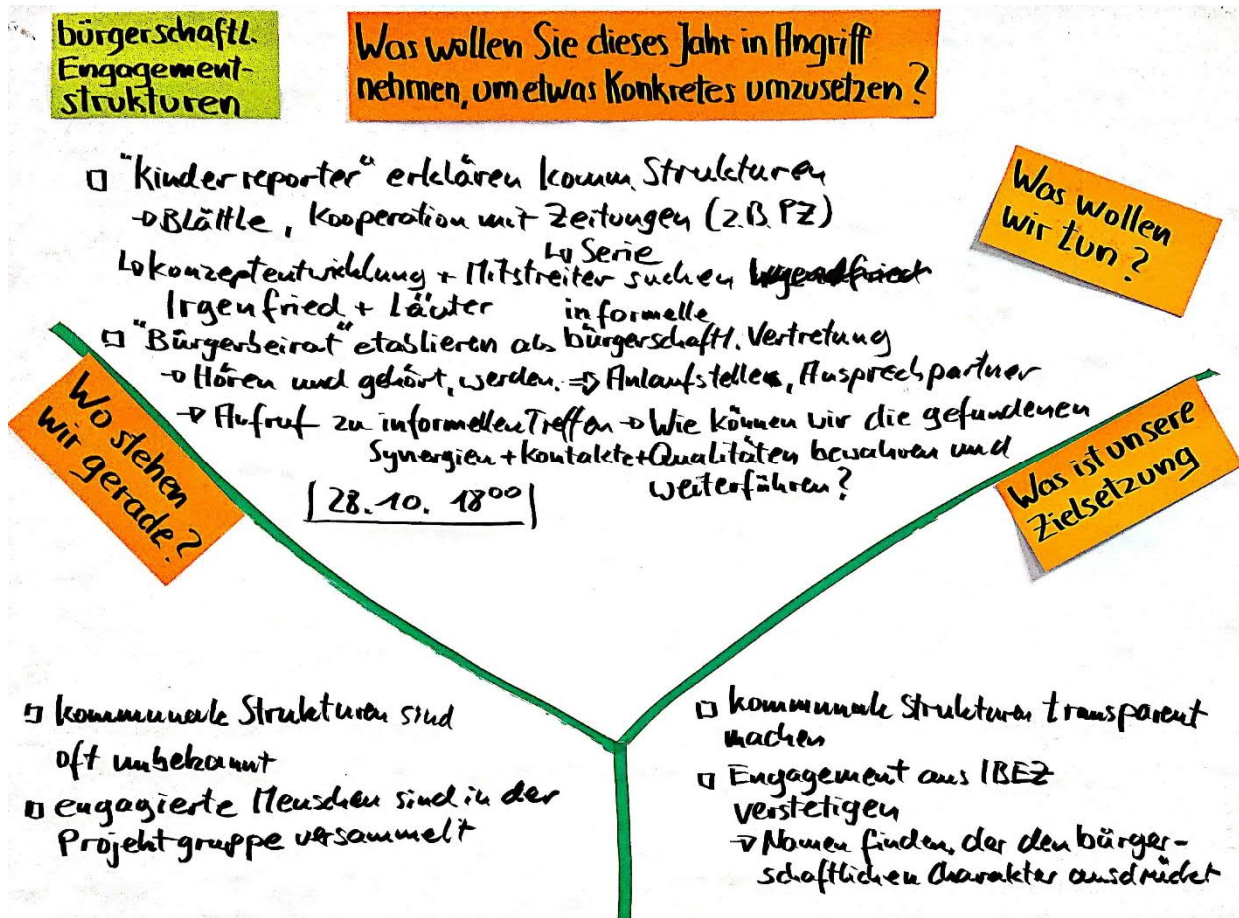 bürgerschaftl.
Engagement-
strukturen
Was wollen Sie dieses Jahr in Angriff
nehmen, um etwas Konkretes umzusetzen?
Was wollen
wir tun?
"Kinderreporter" erklären komm. Strukturen
Blättle, Kooperation mit Zeitungen (z.B. PZ)
Serie
Konzeptentwicklung + Mitstreiter suchen
Irgenfried + Läuter
informelle
"Bürgerbeirat" etablieren als bürgerschaftl. Vertretung
→ Hören und gehört werden. ⇒ Anlaufstelle, Ansprechpartner
→ Aufruf zu informellen Treffen → Wie können wir die gefundenen
Synergien + Kontakte + Qualitäten bewahren und
weiterführen?
28.10. 18⁰⁰
Wo stehen
wir gerade?
kommunale Strukturen sind
oft unbekannt
engagierte Menschen sind in der
Projektgruppe versammelt
Was ist unsere
Zielsetzung
kommunale Strukturen transparent
machen
Engagement aus IBEZ
verstetigen
→ Namen finden, der den bürger-
schaftlichen Charakter ausdrückt